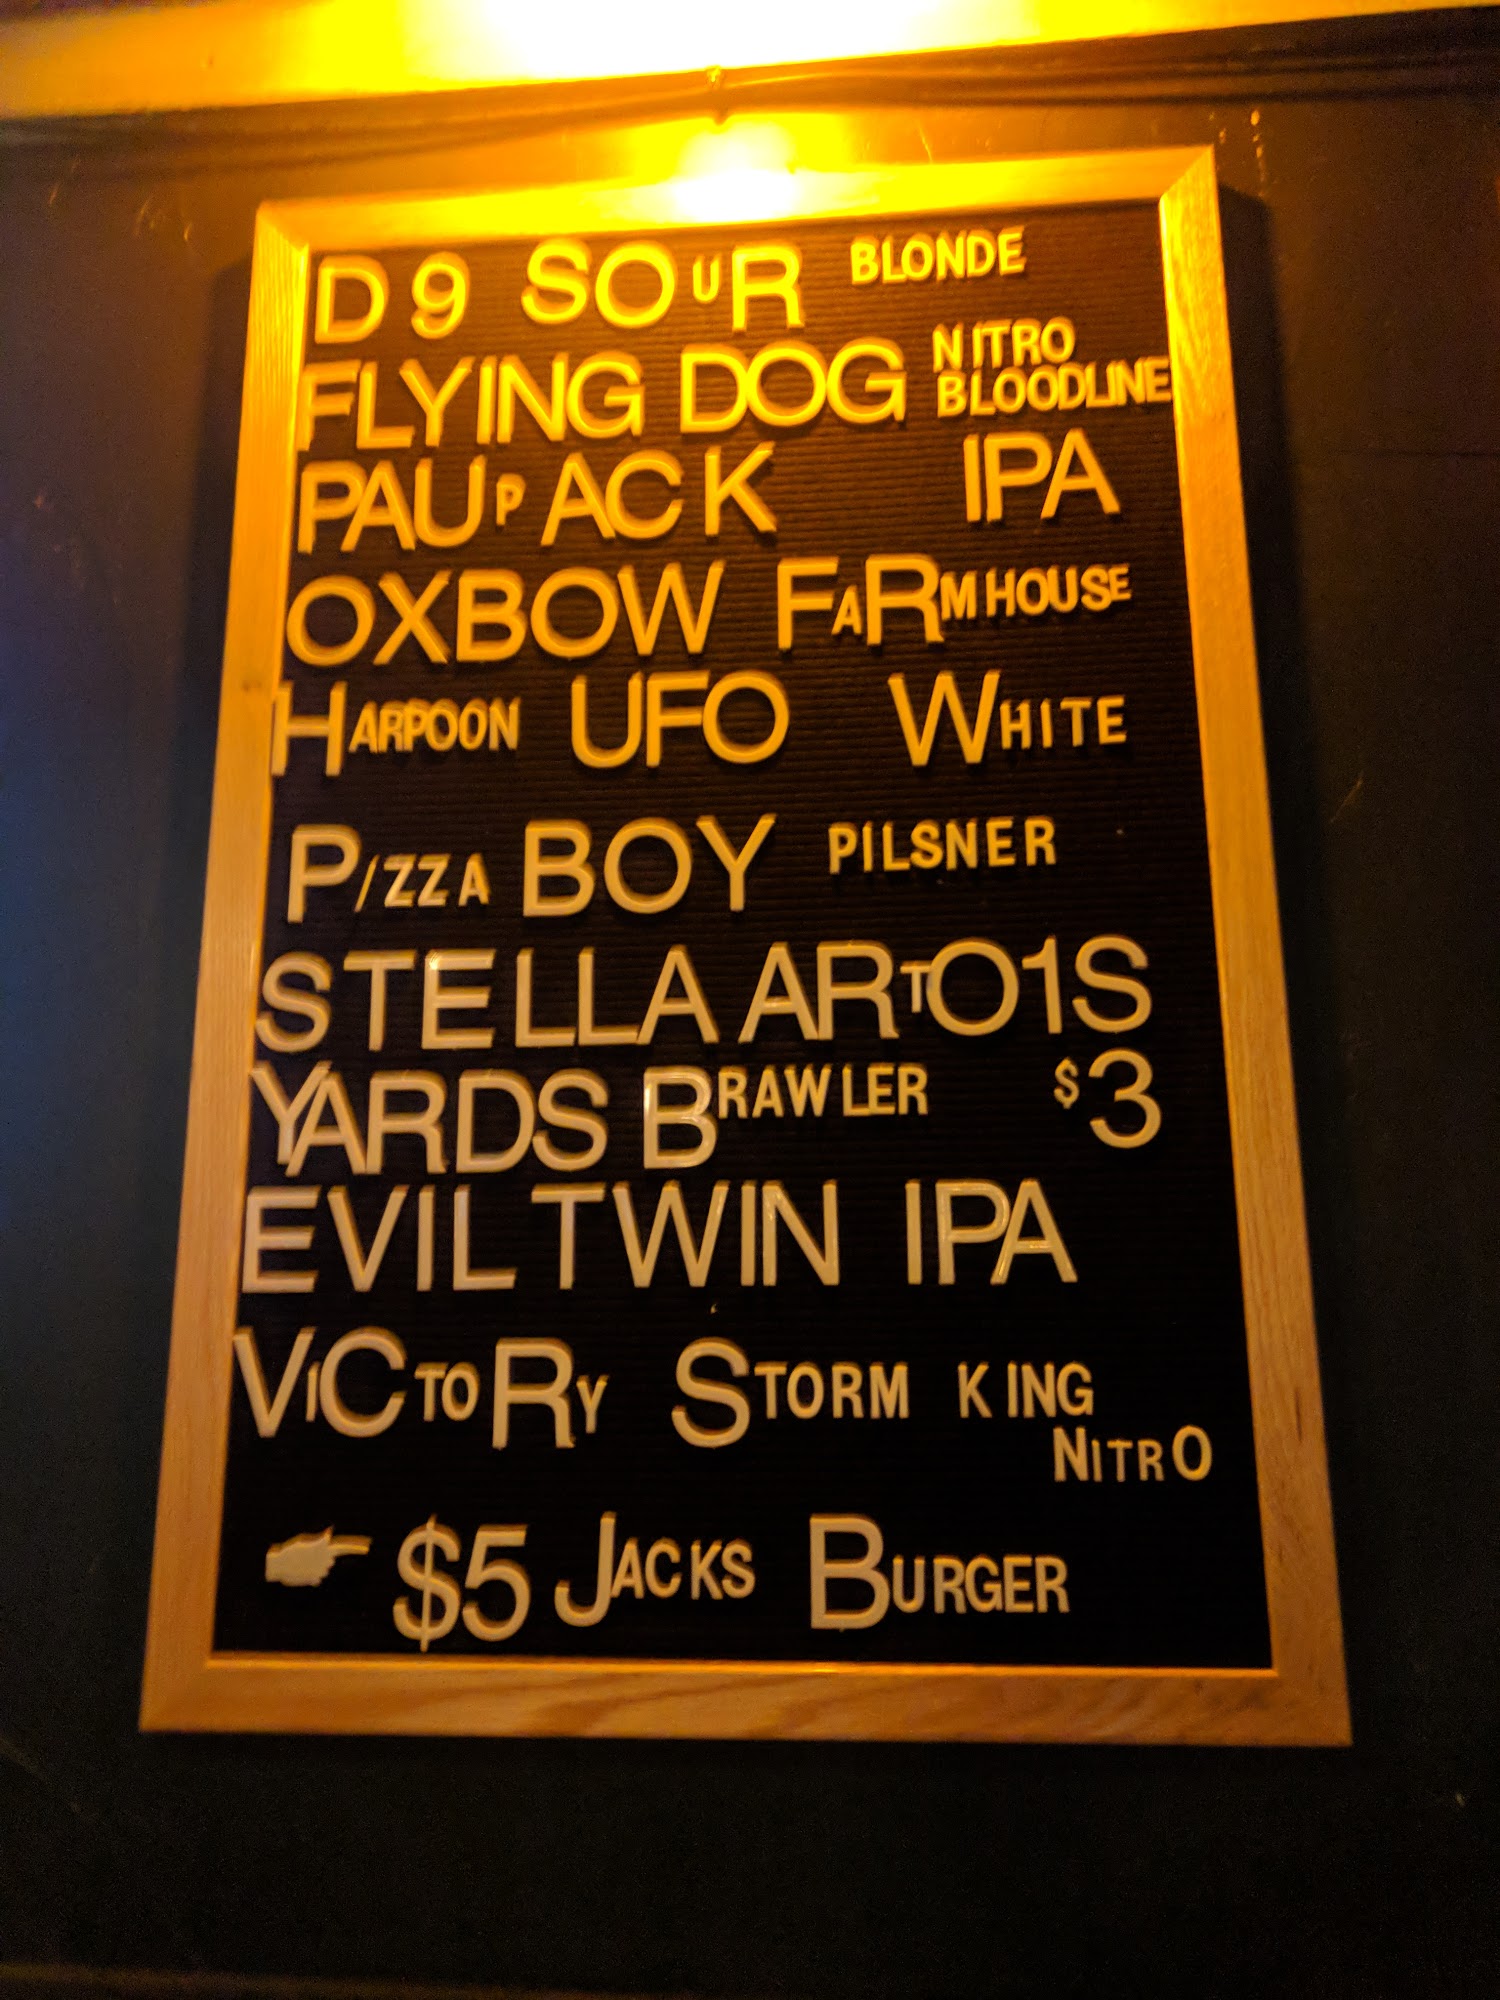 D9 SOUR BLONDE
FLYING DOG NITRO BLOODLINE
PAUPACK IPA
OXBOW FARMHOUSE
HARPOON UFO WHITE
P/ZZA BOY PILSNER
STELLA ARTO1S
YARDS BRAWLER $3
EVIL TWIN IPA
VICTORY STORM KING
NITRO
$5 JACKS BURGER